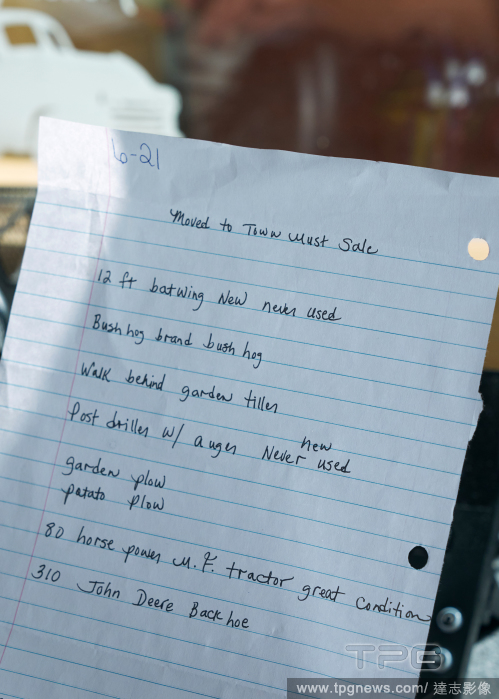 6-21
Moved to Town Must Sale
12 ft batwing New never used
Bush hog brand bush hog
Walk behind garden tiller
Post driller w/ auger Never new used
garden plow
patato plow
80 horse power M.F. tractor great condition
310 John Deere Back hoe
TPG
www.tpgnews.com/ 達志影像